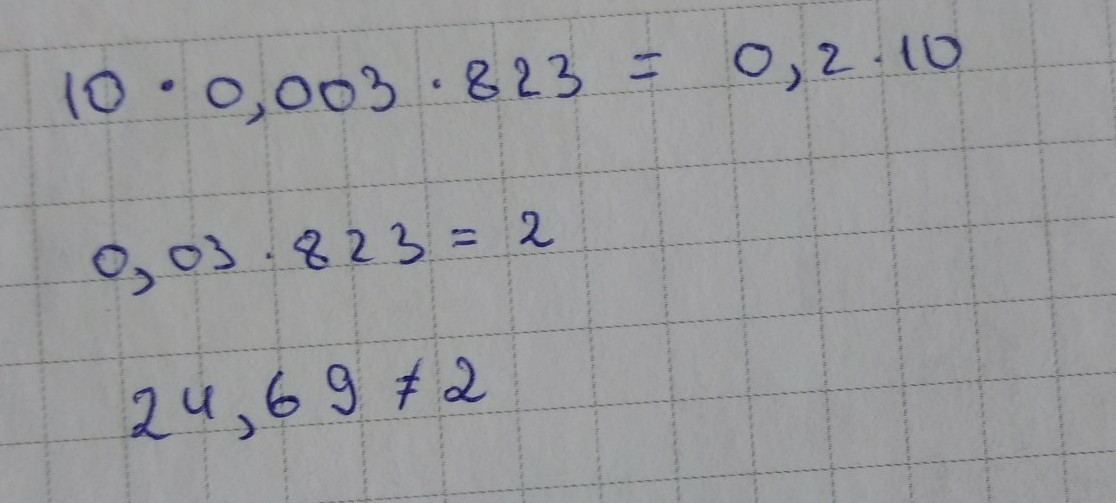 10 · 0,003 · 823 = 0,2 · 10
0,03 · 823 = 2
24,69 ≠ 2